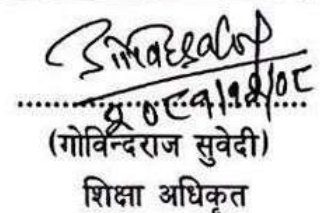 २०८१/१२/०८
(गोविन्दराज सुवेदी)
शिक्षा अधिकृत